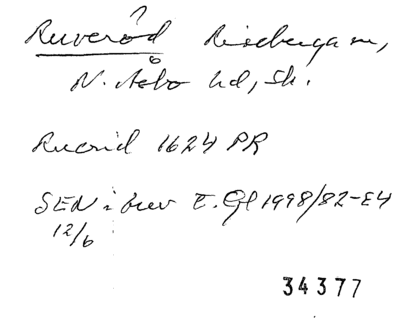 ?
Ruveröd Riseberga sn,
N. Åsbo hd, Sk.
Ruerid 1624 PR
SEN i brev T. Gl 1998/82-84
12/6
34377